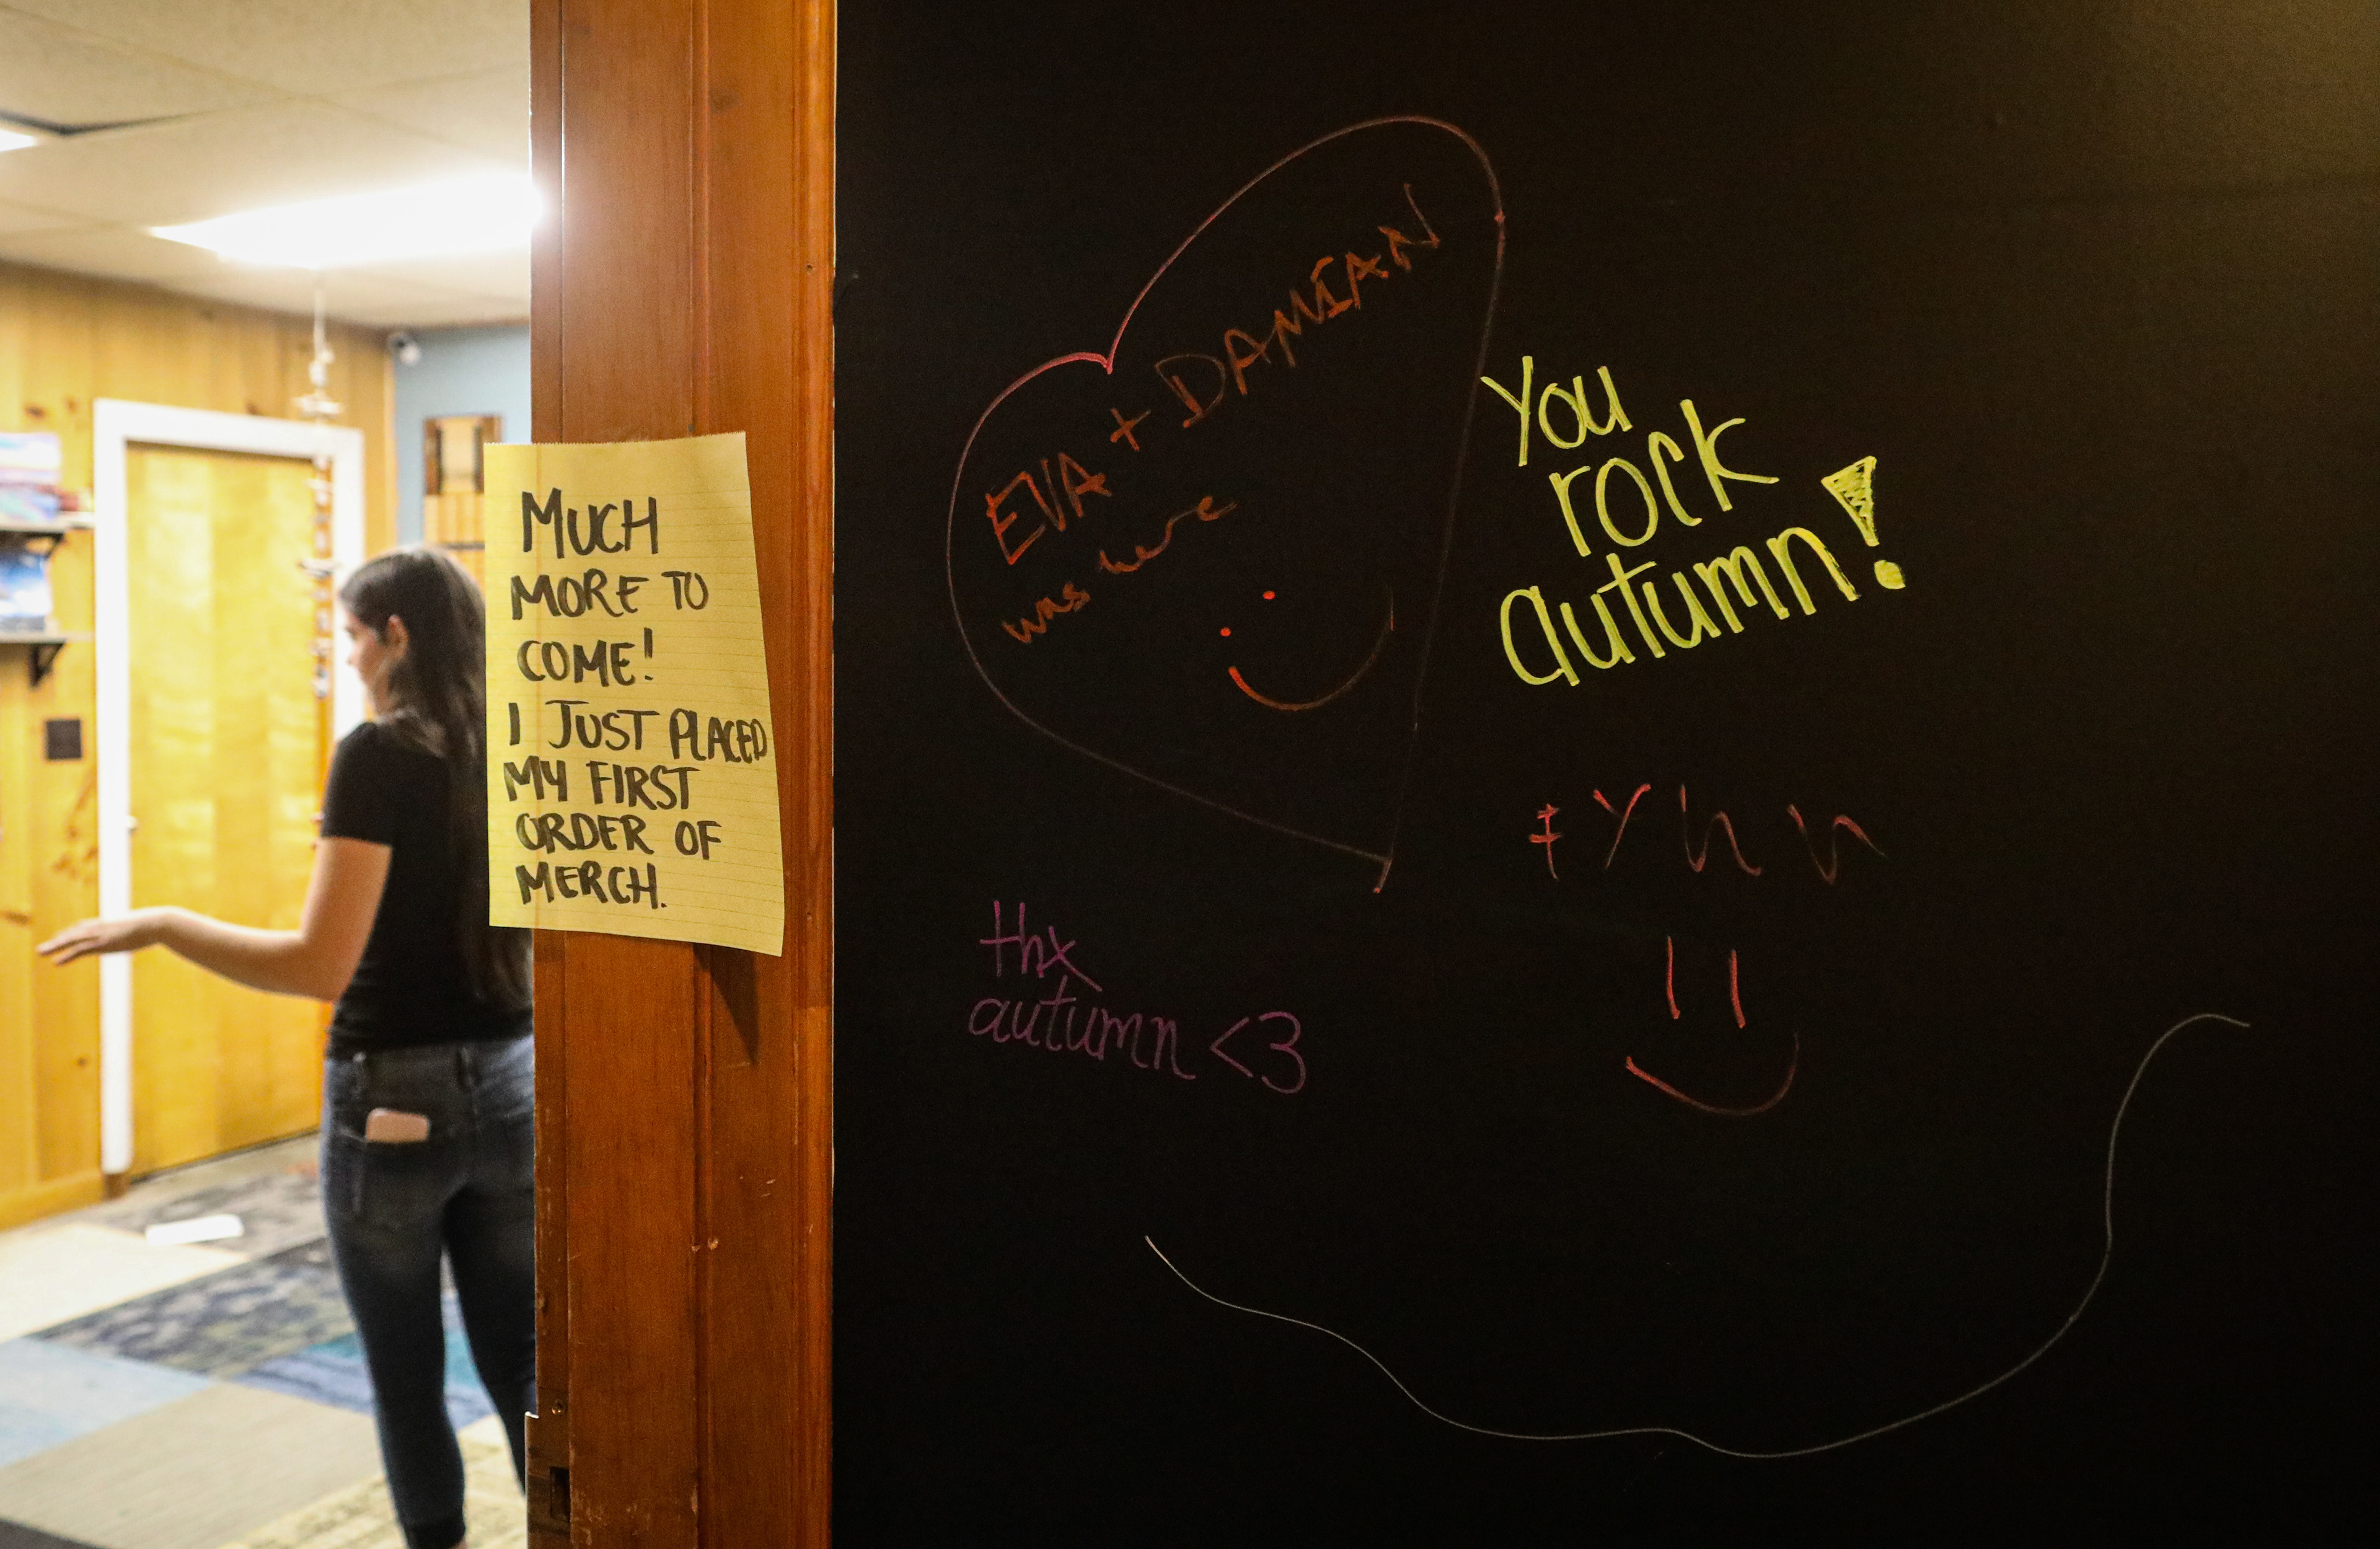 MUCH
MORE TO
COME!
I JUST PLACED
MY FIRST
ORDER OF
MERCH.
EVA + DAMIAN
was here
You
rock
autumn!
thx
autumn <3